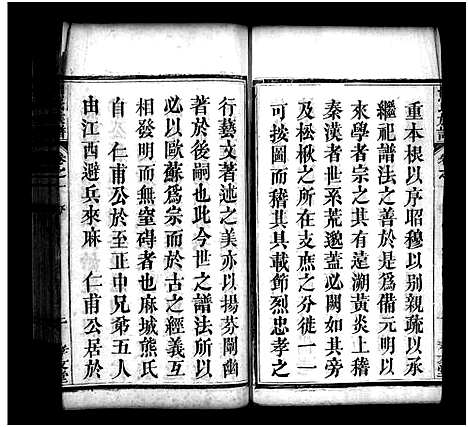 重本根以序昭穆以別親疏以承
繼祀譜法之善於是爲備元明以
來學者宗之其有遠溯黃炎上稽
秦漢者世系荒邈蓋必闕如其旁
及松楸之所在支庶之分徙一一
可按圖而稽其具載節烈忠孝之
行藝文著述之美亦以揚芬闡幽
著於後嗣也此今世之譜法所以
必以歐蘇爲宗而於古之經義互
相發明而無窒碍者也麻城熊氏
自仁甫公於至正中兄弟五人
由江西避兵來麻仁甫公居於